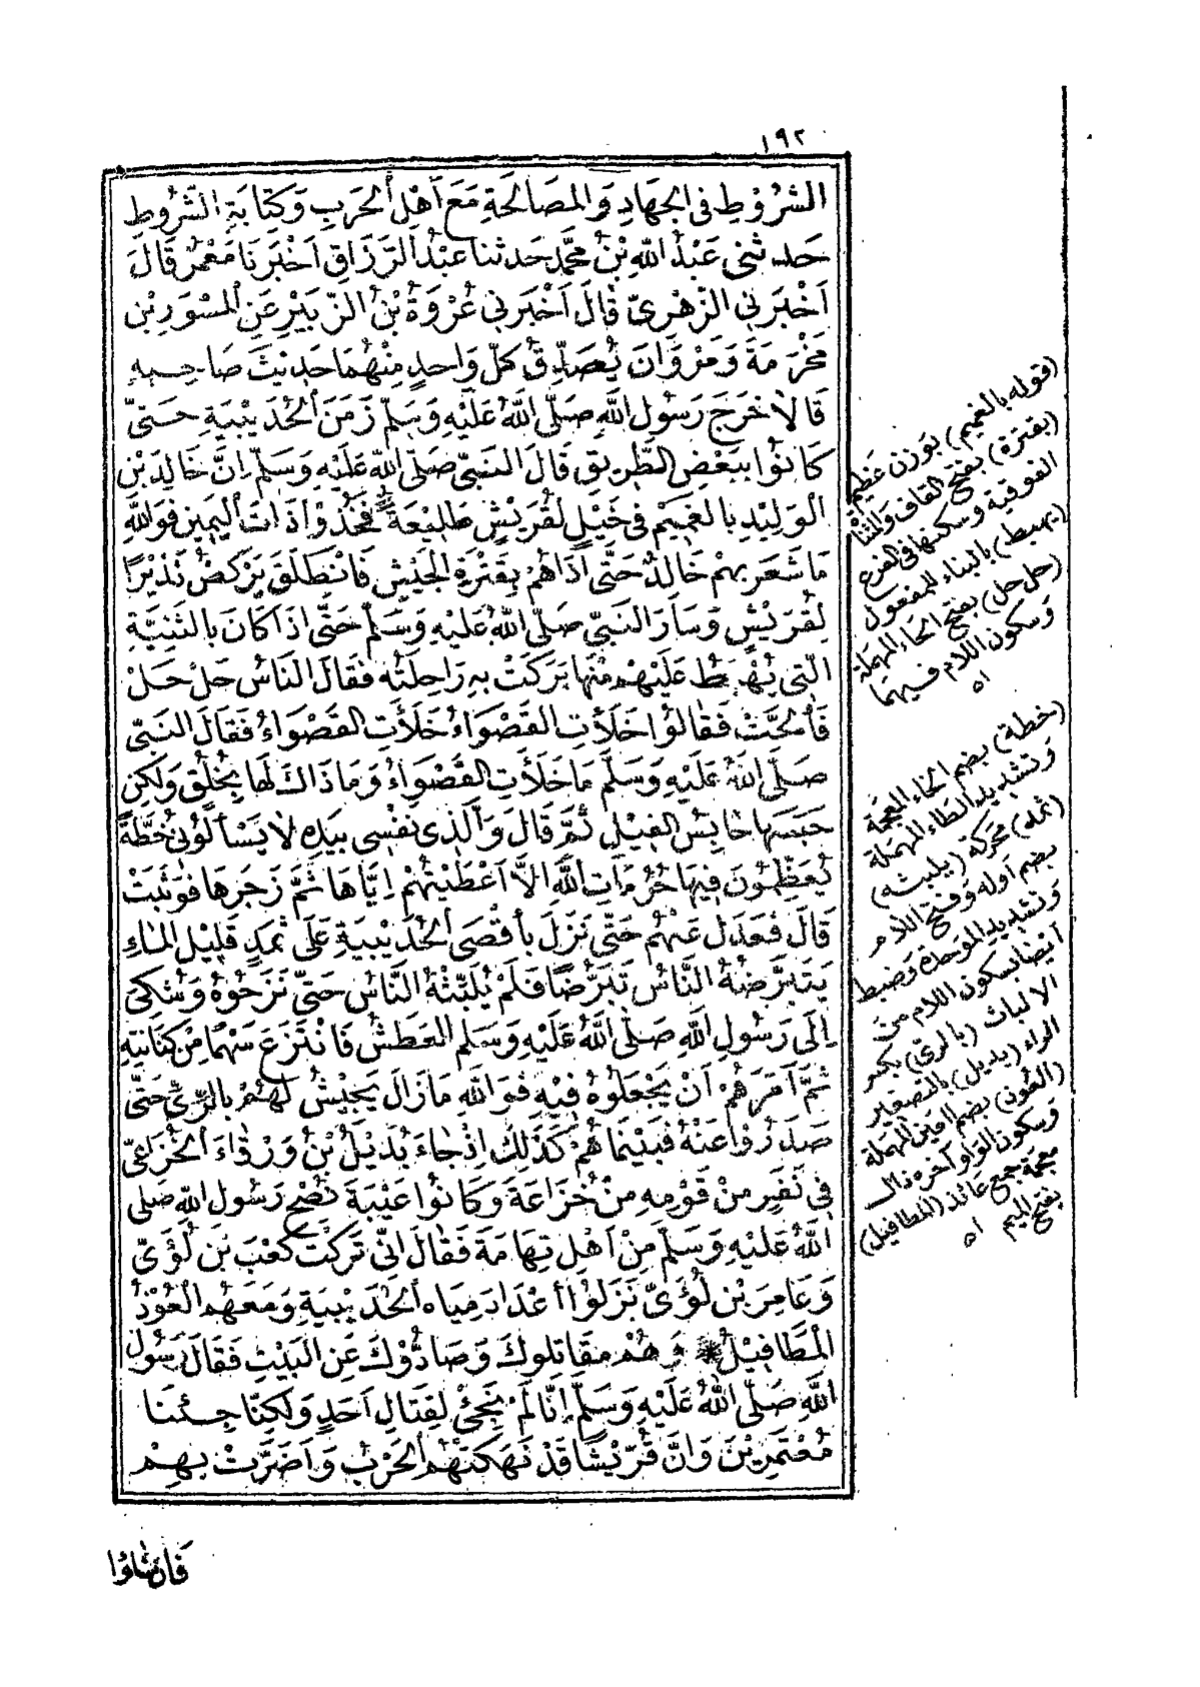 ١٩٢
الشُّرُوْطِ فِى الْجِهَادِ وَالْمُصَالَحَةِ مَعَ اَهْلِ الْحَرْبِ وَكِتَابَةِ الشُّرُوطِ
حَدَّثَنِى عَبْدُ اللّٰهِ بْنُ مُحَمَّدٍ حَدَّثَنَا عَبْدُ الرَّزَّاقِ اَخْبَرَنَا مَعْمَرٌ قَالَ
اَخْبَرَنِى الزُّهْرِىُّ قَالَ اَخْبَرَنِى عُرْوَةُ بْنُ الزُّبَيْرِ عَنِ الْمِسْوَرِ بْنِ
مَخْرَمَةَ وَمَرْوَانَ يُصَدِّقُ كُلُّ وَاحِدٍ مِنْهُمَا حَدِيْثَ صَاحِبِهِ
قَالَا خَرَجَ رَسُوْلُ اللّٰهِ صَلَّى اللّٰهُ عَلَيْهِ وَسَلَّمَ زَمَنَ الْحُدَيْبِيَةِ حَتَّى
كَانُوْا بِبَعْضِ الطَّرِيْقِ قَالَ النَّبِىُّ صَلَّى اللّٰهُ عَلَيْهِ وَسَلَّمَ اِنَّ خَالِدَ بْنَ
الْوَلِيْدِ بِالْغَمِيْمِ فِى خَيْلٍ لِقُرَيْشٍ طَلِيْعَةً فَخُذُوْا ذَاتَ الْيَمِيْنِ فَوَاللّٰهِ
مَا شَعَرَ بِهِمْ خَالِدٌ حَتَّى اِذَا هُمْ بِقَتَرَةِ الْجَيْشِ فَانْطَلَقَ يَرْكُضُ نَذِيْرًا
لِقُرَيْشٍ وَسَارَ النَّبِىُّ صَلَّى اللّٰهُ عَلَيْهِ وَسَلَّمَ حَتَّى اِذَا كَانَ بِالثَّنِيَّةِ
الَّتِى يُهْبَطُ عَلَيْهِمْ مِنْهَا بَرَكَتْ بِهِ رَاحِلَتُهُ فَقَالَ النَّاسُ حَلْ حَلْ
فَاَلَحَّتْ فَقَالُوْا خَلَأَتِ الْقَصْوَاءُ خَلَأَتِ الْقَصْوَاءُ فَقَالَ النَّبِىُّ
صَلَّى اللّٰهُ عَلَيْهِ وَسَلَّمَ مَا خَلَأَتِ الْقَصْوَاءُ وَمَا ذَاكَ لَهَا بِخُلُقٍ وَلَكِنْ
حَبَسَهَا حَابِسُ الْفِيْلِ ثُمَّ قَالَ وَالَّذِى نَفْسِى بِيَدِهِ لَا يَسْأَلُوْنِى خُطَّةً
يُعَظِّمُوْنَ فِيْهَا حُرُمَاتِ اللّٰهِ اِلَّا اَعْطَيْتُهُمْ اِيَّاهَا ثُمَّ زَجَرَهَا فَوَثَبَتْ
قَالَ فَعَدَلَ عَنْهُمْ حَتَّى نَزَلَ بِأَقْصَى الْحُدَيْبِيَةِ عَلَى ثَمَدٍ قَلِيْلِ الْمَاءِ
يَتَبَرَّضُهُ النَّاسُ تَبَرُّضًا فَلَمْ يُلَبِّثْهُ النَّاسُ حَتَّى نَزَحُوْهُ وَشُكِىَ
اِلَى رَسُوْلِ اللّٰهِ صَلَّى اللّٰهُ عَلَيْهِ وَسَلَّمَ الْعَطَشُ فَانْتَزَعَ سَهْمًا مِنْ كِنَانَتِهِ
ثُمَّ اَمَرَهُمْ اَنْ يَجْعَلُوْهُ فِيْهِ فَوَاللّٰهِ مَا زَالَ يَجِيْشُ لَهُمْ بِالرِّىِّ حَتَّى
صَدَرُوْا عَنْهُ فَبَيْنَمَا هُمْ كَذَلِكَ اِذْ جَاءَ بُدَيْلُ بْنُ وَرْقَاءَ الْخُزَاعِىُّ
فِى نَفَرٍ مِنْ قَوْمِهِ مِنْ خُزَاعَةَ وَكَانُوْا عَيْبَةَ نُصْحِ رَسُوْلِ اللّٰهِ صَلَّى
اللّٰهُ عَلَيْهِ وَسَلَّمَ مِنْ اَهْلِ تِهَامَةَ فَقَالَ اِنِّى تَرَكْتُ كَعْبَ بْنَ لُؤَىٍّ
وَعَامِرَ بْنَ لُؤَىٍّ نَزَلُوْا اَعْدَادَ مِيَاهِ الْحُدَيْبِيَةِ وَمَعَهُمُ الْعُوْذُ
الْمَطَافِيْلُ وَهُمْ مُقَاتِلُوكَ وَصَادُّوْكَ عَنِ الْبَيْتِ فَقَالَ رَسُوْلُ
اللّٰهِ صَلَّى اللّٰهُ عَلَيْهِ وَسَلَّمَ اِنَّا لَمْ نَجِئْ لِقِتَالِ اَحَدٍ وَلَكِنَّا جِئْنَا
مُعْتَمِرِيْنَ وَاِنَّ قُرَيْشًا قَدْ نَهِكَتْهُمُ الْحَرْبُ وَاَضَرَّتْ بِهِمْ
فَاِنْ شَاؤُا
(قوله بالغميم) بوزن عظيم
(بقترة) بفتح القاف والمثناة
الفوقية وسكنها فى الفرع
(يهبط) بالبناء للمفعول
(حل حل) بفتح الحاء المهملة
وسكون اللام فيهما
اه
(خطة) بضم الخاء المعجمة
وتشديد الطاء المهملة
(ثمد) محركة (يلبثه)
بضم أوله وفتح اللام
وتشديد الموحدة وضبط
أيضا بسكون اللام من
الالباث (بالرى) بكسر
الراء (بديل) بالتصغير
(العوذ) بضم العين المهملة
وسكون الواو آخره ذال
معجمة جمع عائذ (المطافيل)
بفتح الميم اه